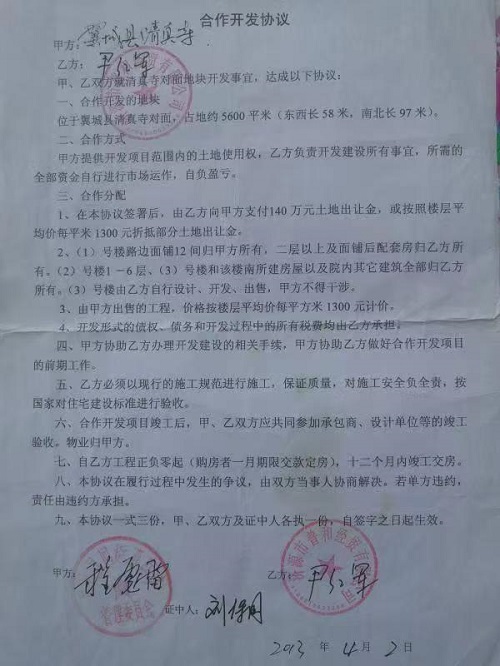 合作开发协议
甲方：襄城县清真寺
乙方：尹红军
甲、乙双方就清真寺对面地块开发事宜，达成以下协议：
一、合作开发的地块
位于襄城县清真寺对面，占地约 5600 平米（东西长 58 米，南北长 97 米）。
二、合作方式
甲方提供开发项目范围内的土地使用权，乙方负责开发建设所有事宜，所需的
全部资金自行进行市场运作，自负盈亏。
三、合作分配
1、在本协议签署后，由乙方向甲方支付140 万元土地出让金，或按照楼层平
均价每平米 1300 元折抵部分土地出让金。
2、（1）号楼路边面铺12 间归甲方所有，二层以上及面铺后配套房归乙方所
有。（2）号楼 1－6 层、（3）号楼和该楼南所建房屋以及院内其它建筑全部归乙方
所有。（3）号楼由乙方自行设计、开发、出售，甲方不得干涉。
3、由甲方出售的工程，价格按楼层平均价每平方米 1300 元计价。
4、开发形式的债权、债务和开发过程中的所有税费均由乙方承担。
四、甲方协助乙方办理开发建设的相关手续，甲方协助乙方做好合作开发项目
的前期工作。
五、乙方必须以现行的施工规范进行施工，保证质量，对施工安全负全责，按
国家对住宅建设标准进行验收。
六、合作开发项目竣工后，甲、乙双方应共同参加承包商、设计单位等的竣工
验收。物业归甲方。
七、自乙方工程正负零起（购房者一月期限交款定房），十二个月内竣工交房。
八、本协议在履行过程中发生的争议，由双方当事人协商解决。若单方违约，
责任由违约方承担。
九、本协议一式三份，甲、乙双方及证中人各执一份，自签字之日起生效。
甲方： 乙方：尹红军
管理委员会
证中人：刘保周
2013 年 4 月 2 日